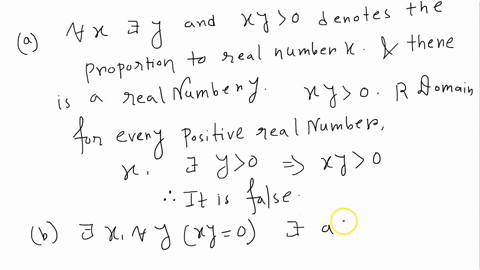 (a) ∀ x ∃ y and xy>0 denotes the
proportion to real number x. & there
is a real Number y. xy>0. R Domain
for every positive real Numbers,
x, ∃ y>0 ⇒ xy>0
∴ It is false.
(b) ∃ x, ∀ y (xy=0) ∃ a